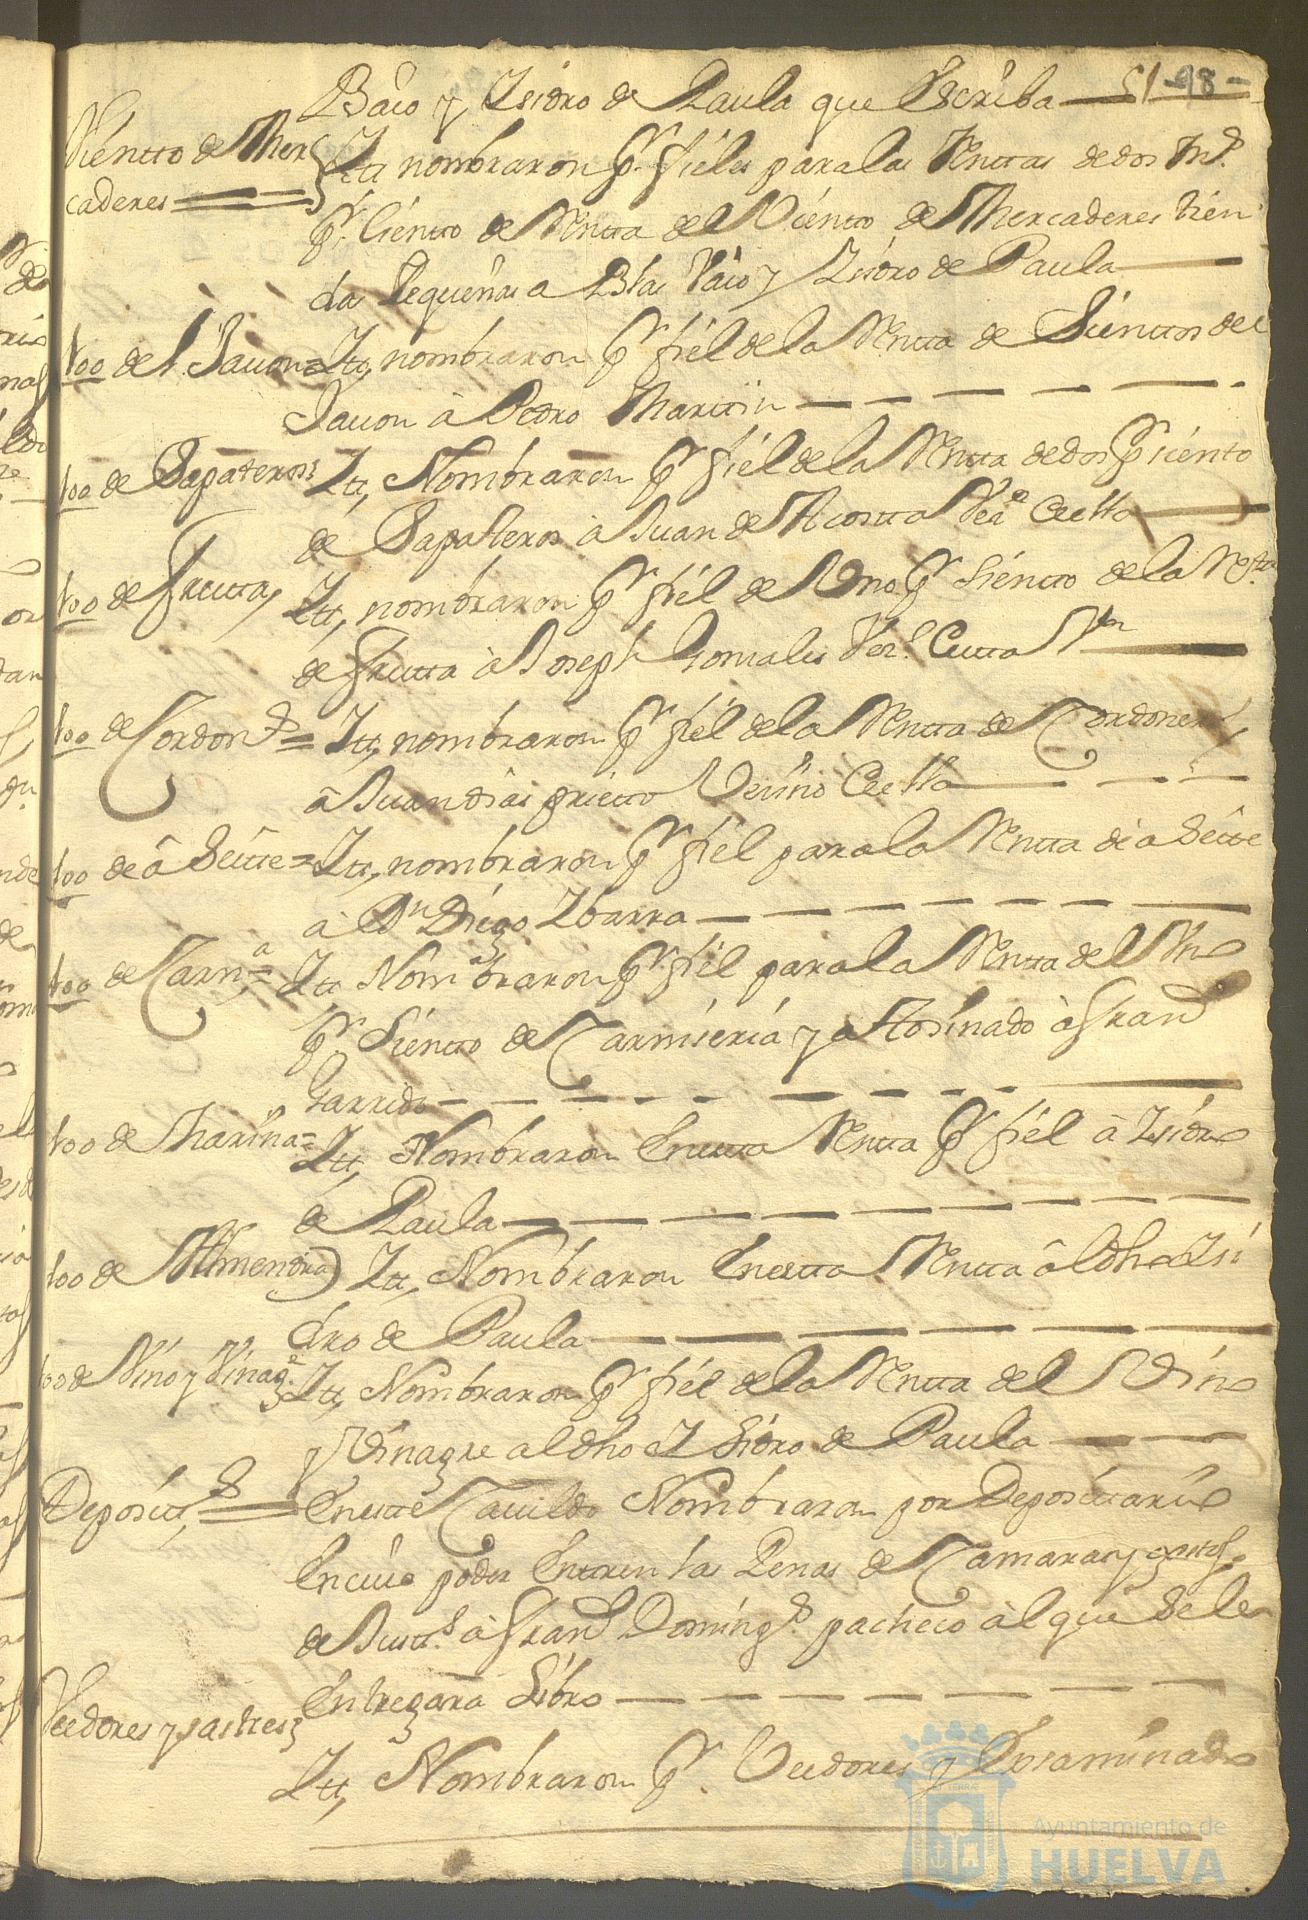 51-98-
Baio y Isidro de Paula que Escriba
Vientto de Mer
caderes
Itt, nombraron Pr. fieles para las Renttas de dos
Pr. Ciento de Rentta del Viento de Mercaderes tien
das Pequeñas a Blas Vaio y Isidro de Paula
too del Jauon = Itt, nombraron Pr fiel de la Rentta de Sienttos del
Jauon â Pedro Martin
too de Sapateros Itt, Nombraron Pr fiel de la Rentta de dos Pr ciento
de Sapateros â Juan de Acosta
too de Frutta, Itt, nombraron Pr fiel de Uno Pr Sientto de la Rtta
de Frutta â Joseph Gonsales
too de Cordons = Itt, nombraron Pr fiel de la Rentta de Cordoneros
â Juan dias prietto Vesino
too de â Seitte = Itt, nombraron Pr fiel para la Rentta de â Seitte
â Dn Diego Ybarra
too de Carna = Itt Nombraron Pr fiel para la Rentta del Uno
Pr Sientto de Carniseria y a tosinado â Frand
Garrido
too de Harina = Itt, Nombraron En esta Rentta Pr fiel â Isidro
de Paula
too de Almendra) Itt, Nombraron En esta Rentta â el dho Isi
dro de Paula
too de Vino y Vinage Itt, Nombraron Pr fiel de la Rentta del Vino
y Vinagre al dho Isidro de Paula
Depositt, En este Cauildo Nombraron por Depositario
En cuio poder Entren las Penas de Camaras y gasttos
de Justts. â Frand Doming. pacheco âl que Se le
Entregara Libro
Veedores y sastres
Itt, Nombraron Pr. Veedores y Exsaminado
Ayuntamiento de
HUELVA